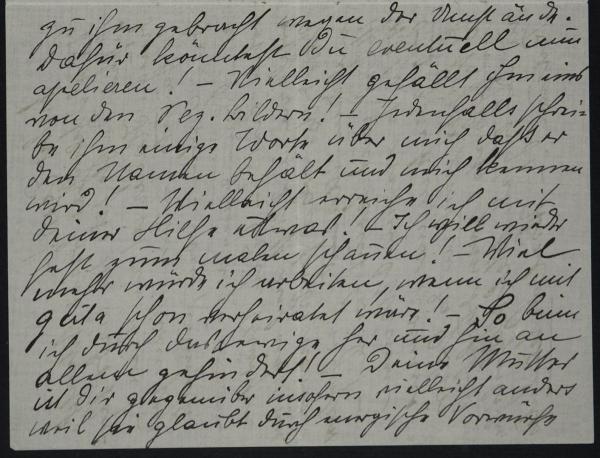 zu ihm gebracht wegen der Umstände.
Dafür könntest Du eventuell nun
apelieren! – Vielleicht gefällt ihm eins
von den Seg. bildern! – Jedenfalls schrei-
be ihm einige Worte über mich daß er
den Namen behält und mich kennen
wird! – Vielleicht erreiche ich mit
deiner Hilfe etwas! – Ich will wieder
fest zum malen schauen! – Viel
mehr würde ich arbeiten, wenn ich mit
schon verheiratet wäre! – So bin
ich durch das ewige her und hin an
allem gehindert! – Deine Mutter
ist dir gegenüber insofern vielleicht anders
weil sie glaubt durch energische Vorwürfe